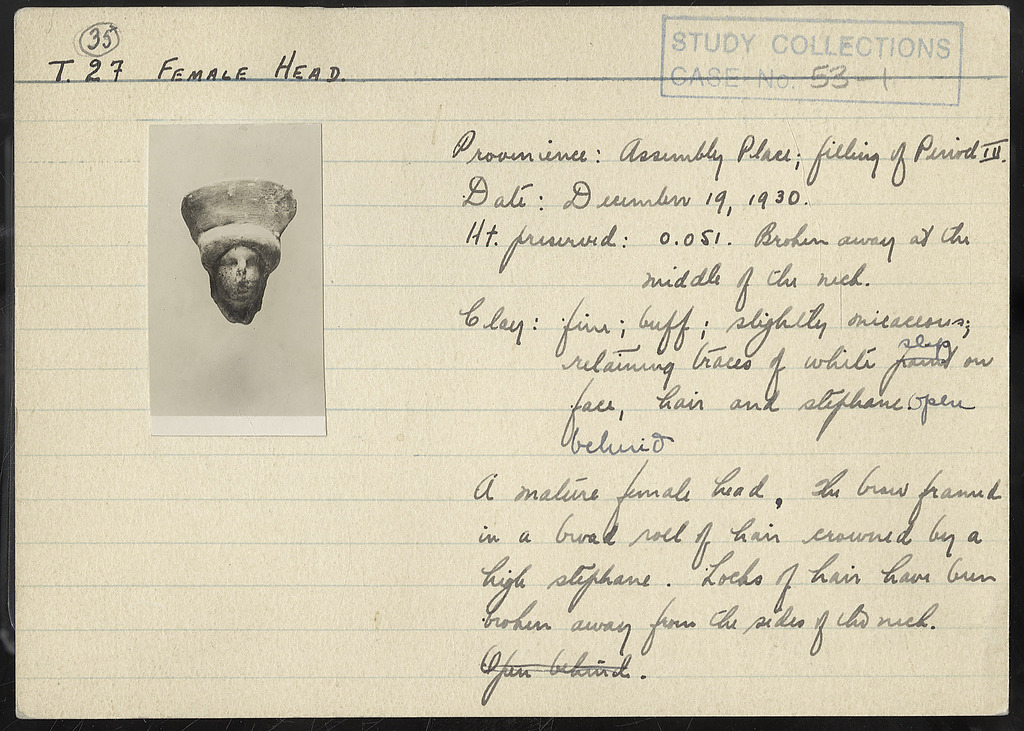 35
T. 27 FEMALE HEAD.
STUDY COLLECTIONS
CASE No. 53-1
Provenience: Assembly Place; filling of Period III.
Date: December 19, 1930.
Ht. preserved: 0.051. Broken away at the
middle of the neck.
Clay: fine; buff; slightly micaceous;
slip
retaining traces of white paint on
face, hair and stephane. Open
behind
A mature female head, the brow framed
in a broad roll of hair crowned by a
high stephane. Locks of hair have been
broken away from the sides of the neck.
Open behind.